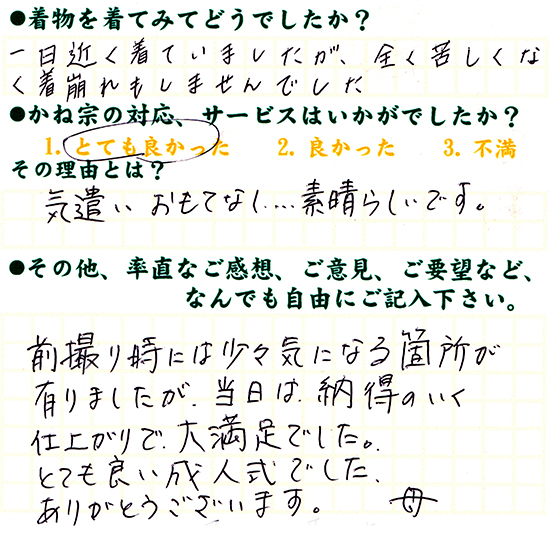 ●着物を着てみてどうでしたか？
一日近く着ていましたが、全く苦しくな
く着崩れもしませんでした
●かね宗の対応、サービスはいかがでしたか？
1. とても良かった　2. 良かった　3. 不満
その理由とは？
気遣い おもてなし…素晴らしいです。
●その他、率直なご感想、ご意見、ご要望など、
なんでも自由にご記入下さい。
前撮り時には少々気になる箇所が
有りましたが、当日は、納得のいく
仕上がりで、大満足でした。
とても良い成人式でした、
ありがとうございます。　母